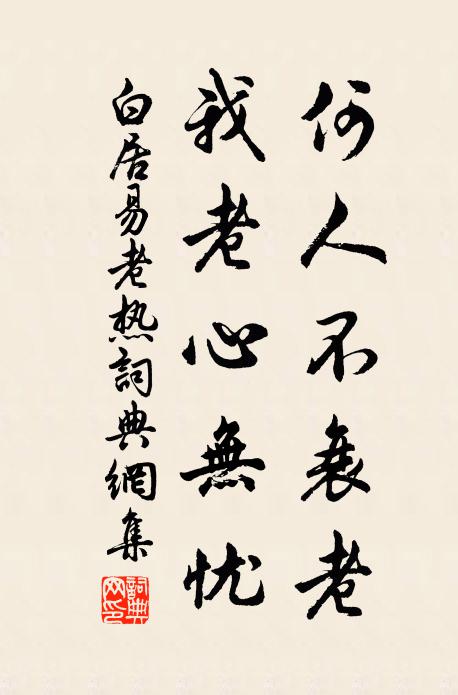 何人不衰老
我老心無忧
白居易老热詞典網集
詞典网印